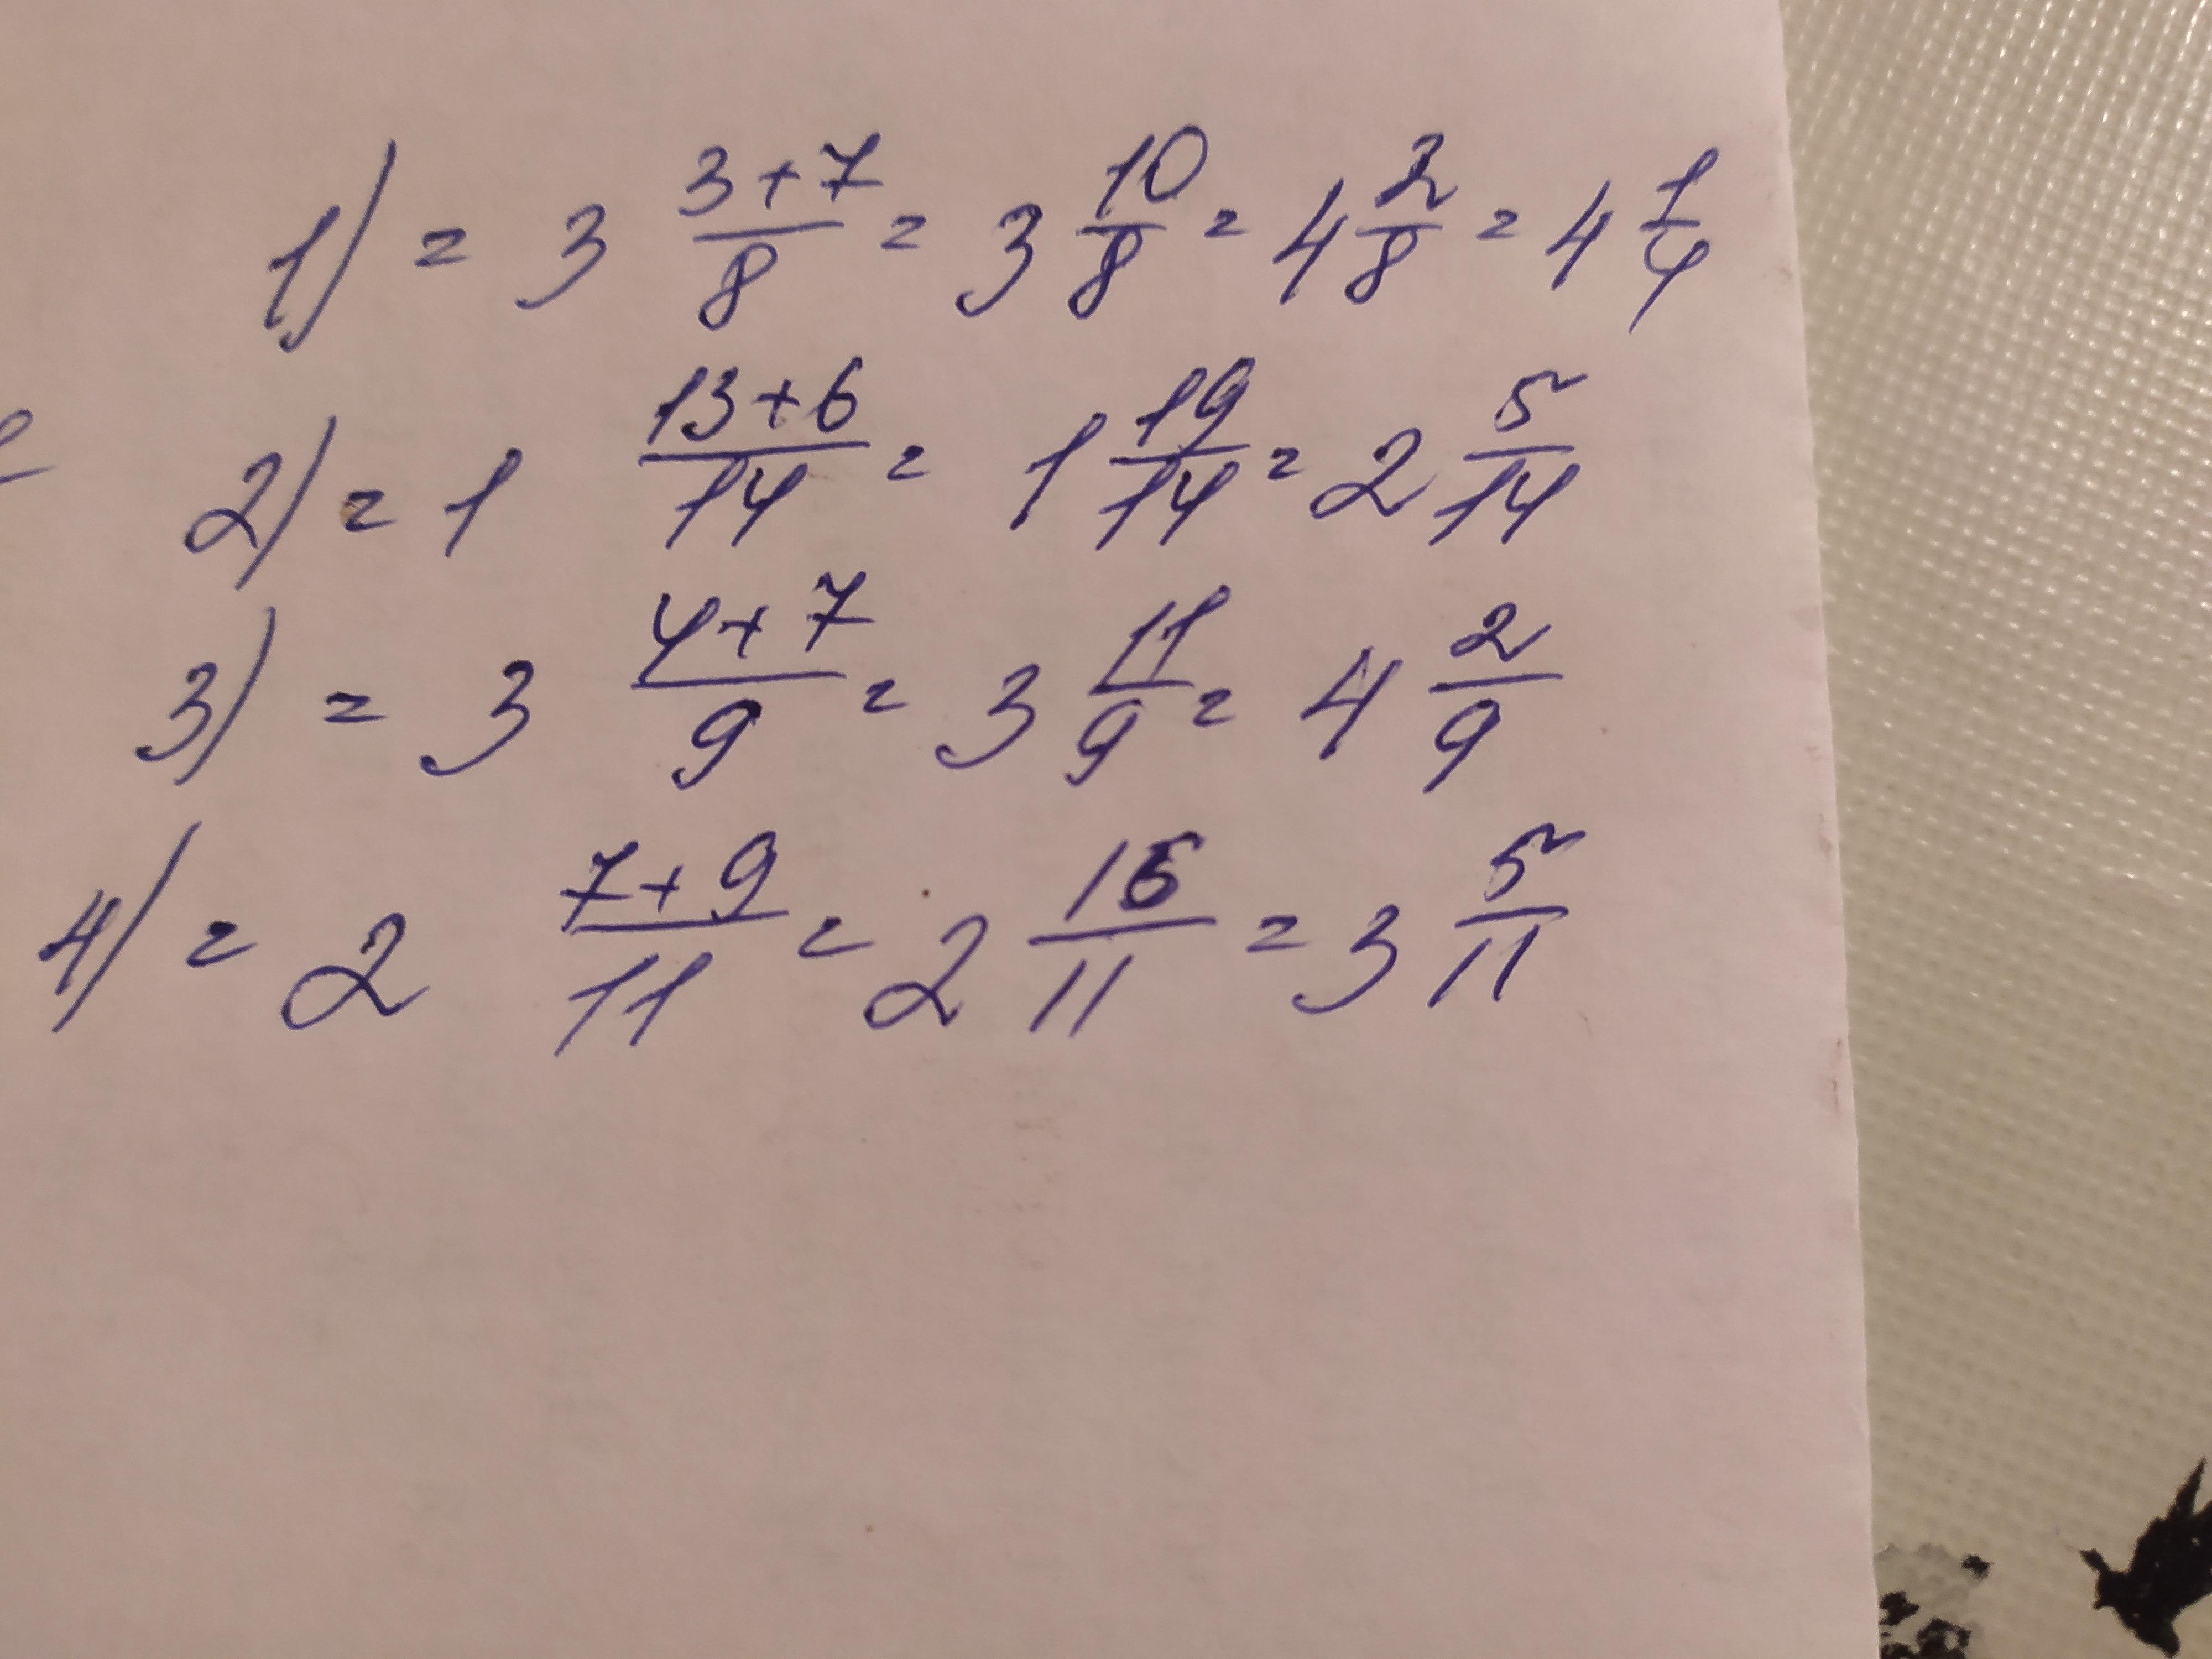 1) = 3 3+7/8 = 3 10/8 = 4 2/8 = 4 1/4
2) = 1 13+6/14 = 1 19/14 = 2 5/14
3) = 3 4+7/9 = 3 11/9 = 4 2/9
4) = 2 7+9/11 = 2 16/11 = 3 5/11